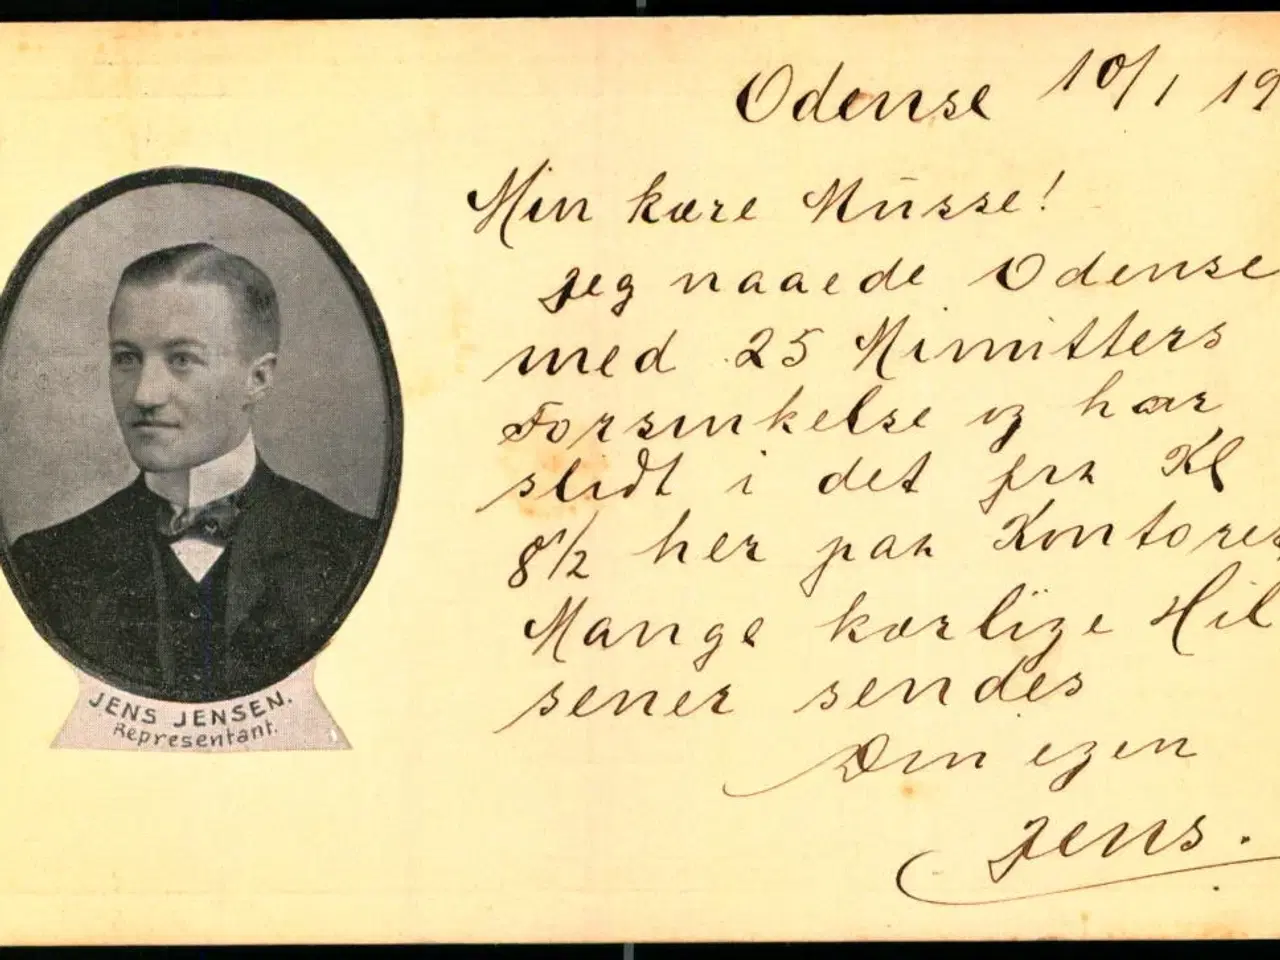 Odense 10/1 19
Min kære Musse!
Jeg naaede Odense
med 25 Minutters
Forsinkelse og har
slidt i det fra Kl
8 1/2 her paa Kontoret
Mange kærlige Hil
sener sendes
Din egen
Jens.
JENS JENSEN.
Repræsentant.